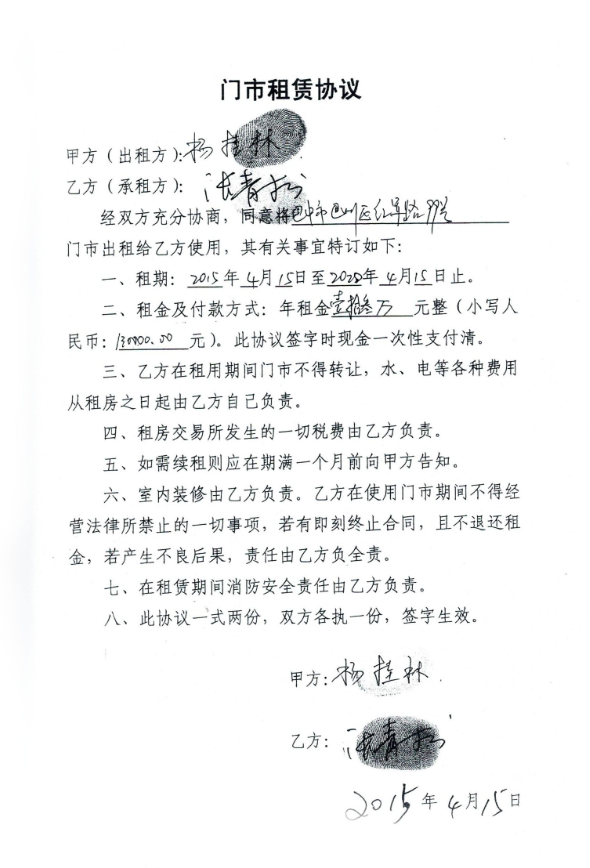 门市租赁协议
甲方（出租方）：杨桂林
乙方（承租方）：青松
经双方充分协商，同意将巴中市巴州区红军路99号
门市出租给乙方使用，其有关事宜特订如下：
一、租期：2015年4月15日至2020年4月15日止。
二、租金及付款方式：年租金壹拾叁万 元整（小写人
民币：130000.00 元）。此协议签字时现金一次性支付清。
三、乙方在租用期间门市不得转让，水、电等各种费用
从租房之日起由乙方自己负责。
四、租房交易所发生的一切税费由乙方负责。
五、如需续租则应在期满一个月前向甲方告知。
六、室内装修由乙方负责。乙方在使用门市期间不得经
营法律所禁止的一切事项，若有即刻终止合同，且不退还租
金，若产生不良后果，责任由乙方负全责。
七、在租赁期间消防安全责任由乙方负责。
八、此协议一式两份，双方各执一份，签字生效。
甲方：杨桂林
乙方：青松
2015年4月15日